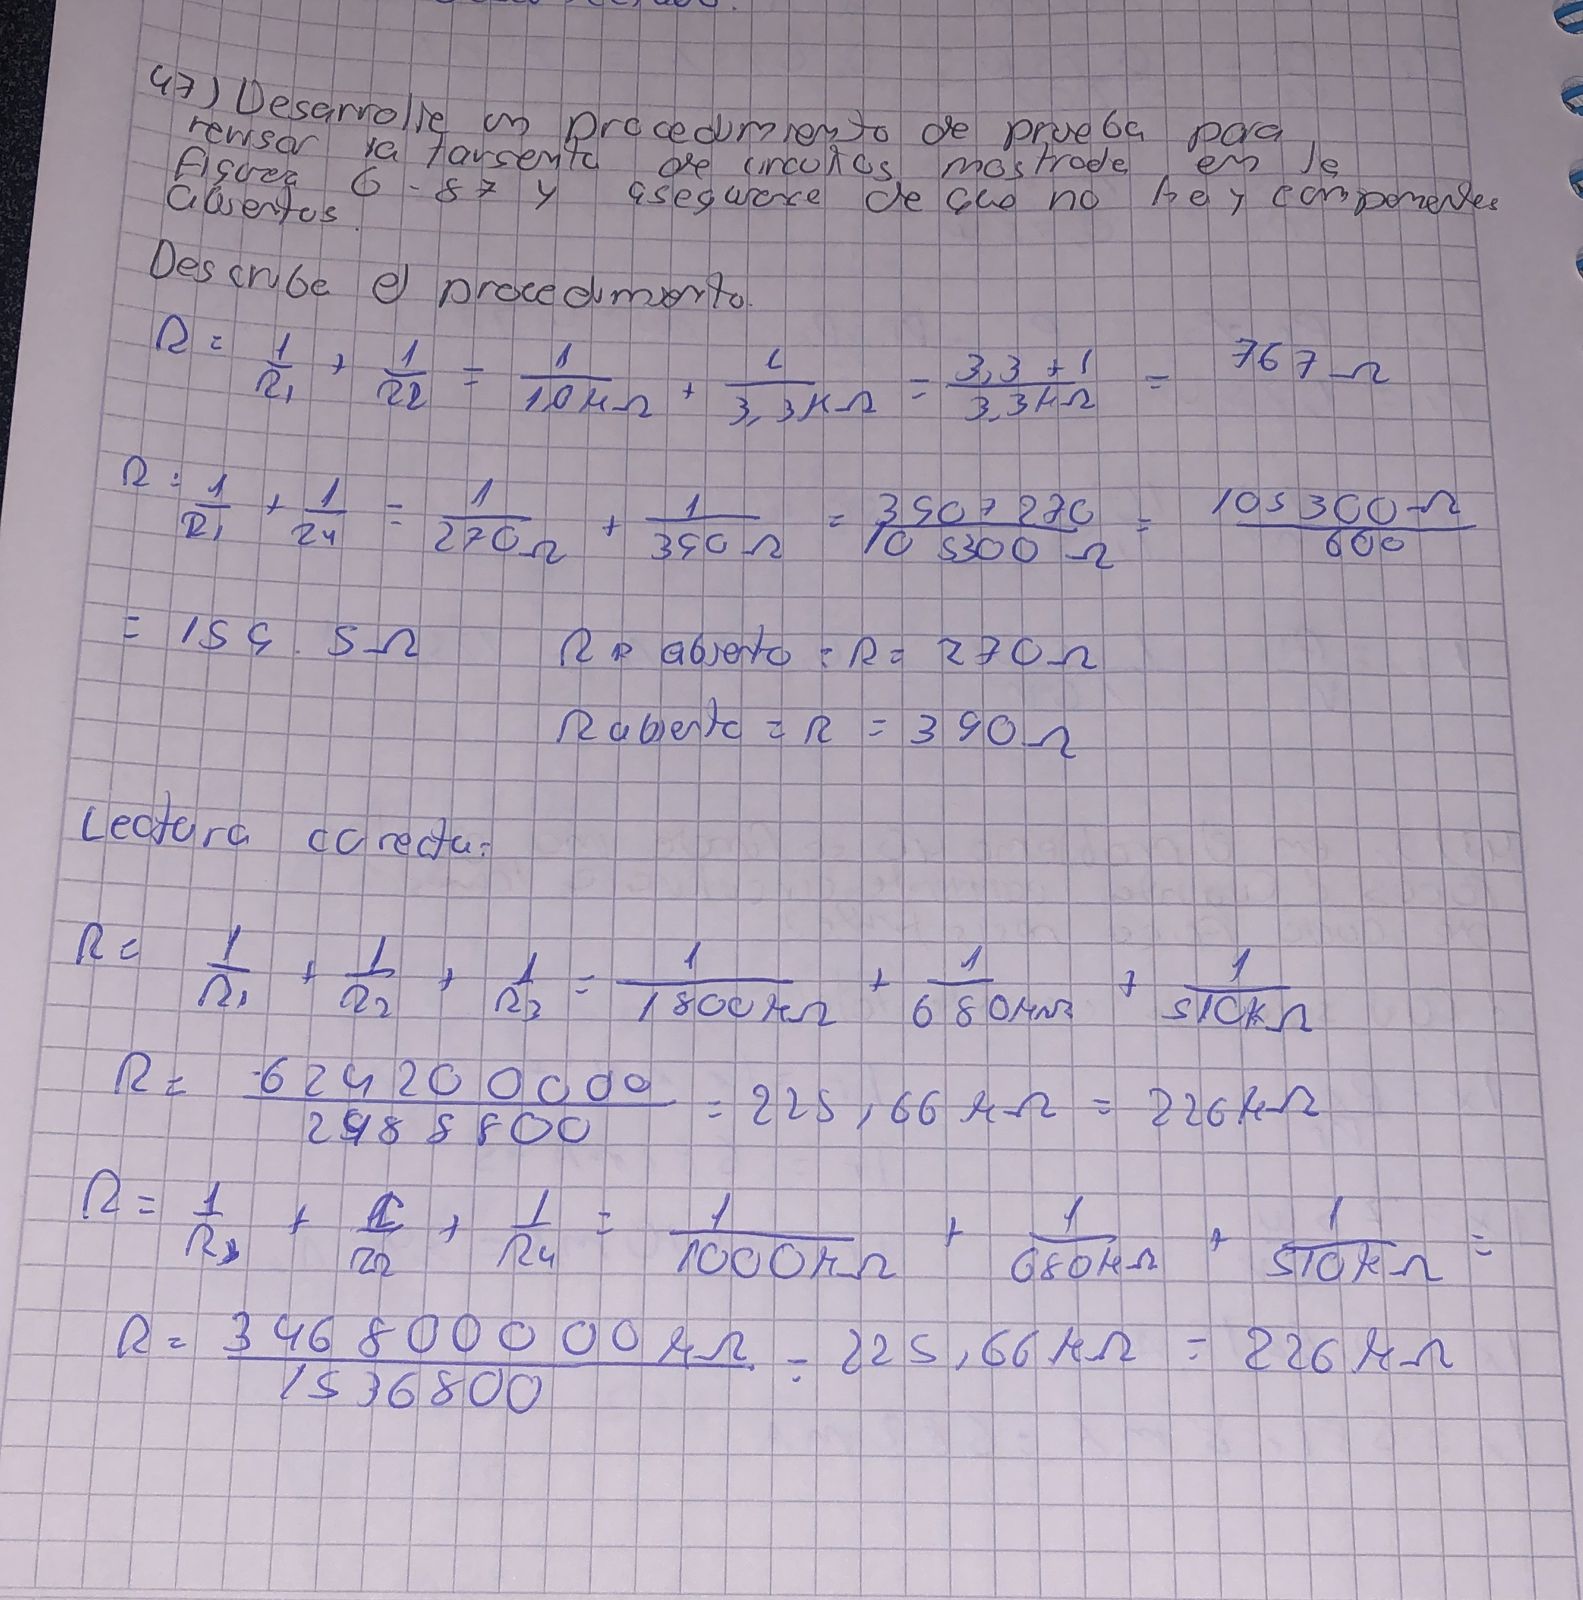 47) Desarrolle un procedimiento de prueba para
revisar la tarjenta de circuitos mostrade en le
Figura 6-87 y asegurece de que no hay componentes
abiertos.
Describe el procedimiento.
R = 1/R1 + 1/R2 = 1/1.0KΩ + 1/3,3KΩ = 3,3+1/3,3KΩ = 767Ω
R = 1/R3 + 1/R4 = 1/270Ω + 1/390Ω = 390+270/105300Ω = 105300Ω/660
= 159.5Ω R abierto = R = 270Ω
R abierto = R = 390Ω
Lectura correcta:
R = 1/R1 + 1/R2 + 1/R3 = 1/1800KΩ + 1/680KΩ + 1/510KΩ
R = 624200000/2988800 = 225,66KΩ = 226KΩ
R = 1/R3 + 1/R2 + 1/R4 = 1/1000KΩ + 1/680KΩ + 1/510KΩ =
R = 346800000KΩ/1536800 = 225,66KΩ = 226KΩ